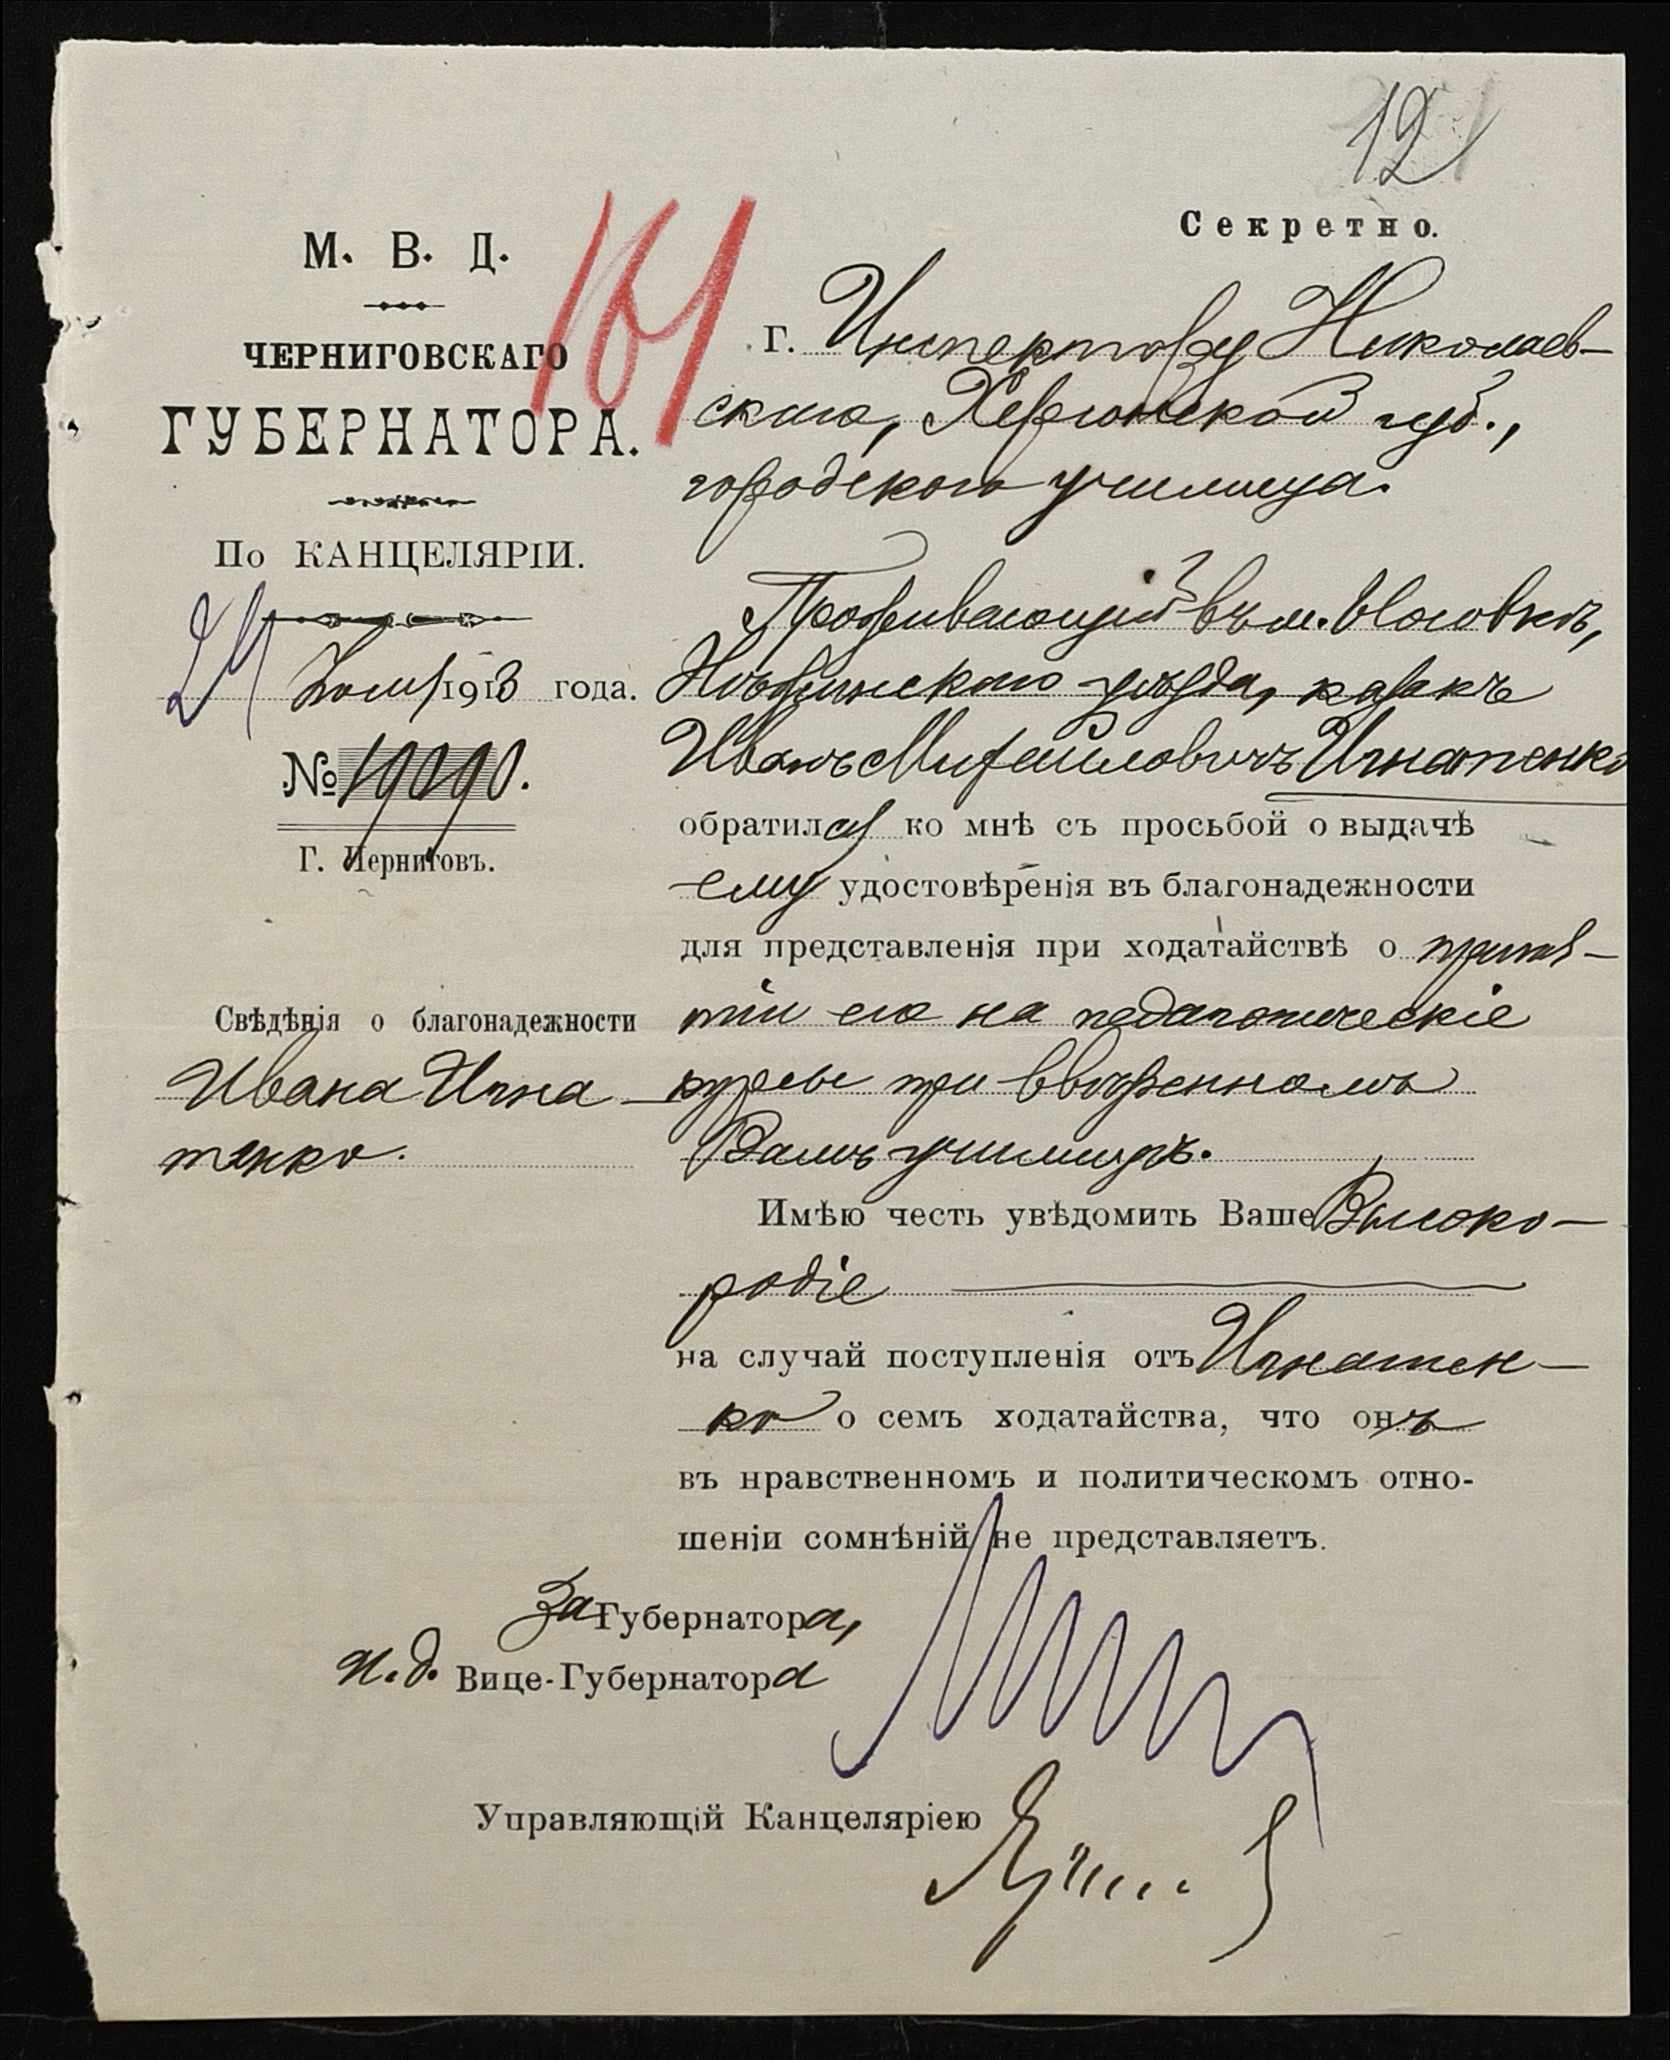 12
Секретно.
М. В. Д.
ЧЕРНИГОВСКАГО
ГУБЕРНАТОРА.
По КАНЦЕЛЯРІИ.
24 Іюля 1913 года.
№ 19090.
Г. Черниговъ.
Свѣдѣнія о благонадежности
Ивана Игна-
тенко.
161
Г. Инспектору Николаев-
скаго, Херсонской губ.,
городского училища.
Проживающій въ м. Носовкѣ,
Нѣжинскаго уѣзда, казакъ
Иванъ Михайловичъ Игнатенко
обратился ко мнѣ съ просьбой о выдачѣ
ему удостовѣренія въ благонадежности
для представленія при ходатайствѣ о приня-
тіи его на педагогическіе
курсы при ввѣренномъ
Вамъ училищѣ.
Имѣю честь увѣдомить Ваше Высоко-
родіе
на случай поступленія отъ Игнатен-
ко о семъ ходатайства, что онъ
въ нравственномъ и политическомъ отно-
шеніи сомнѣній не представляетъ.
За Губернатора,
и.д. Вице-Губернатора
Управляющій Канцеляріею